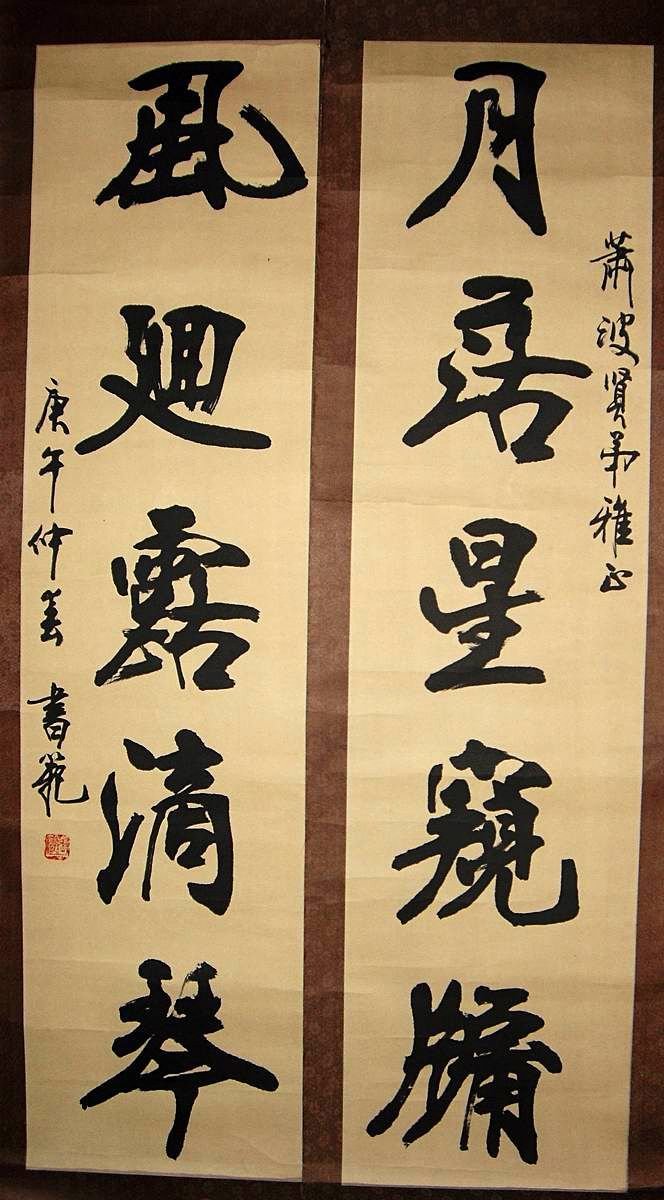 蕭波賢弟雅正
月落星窺牖
風廻露滴琴
庚午仲春 書範